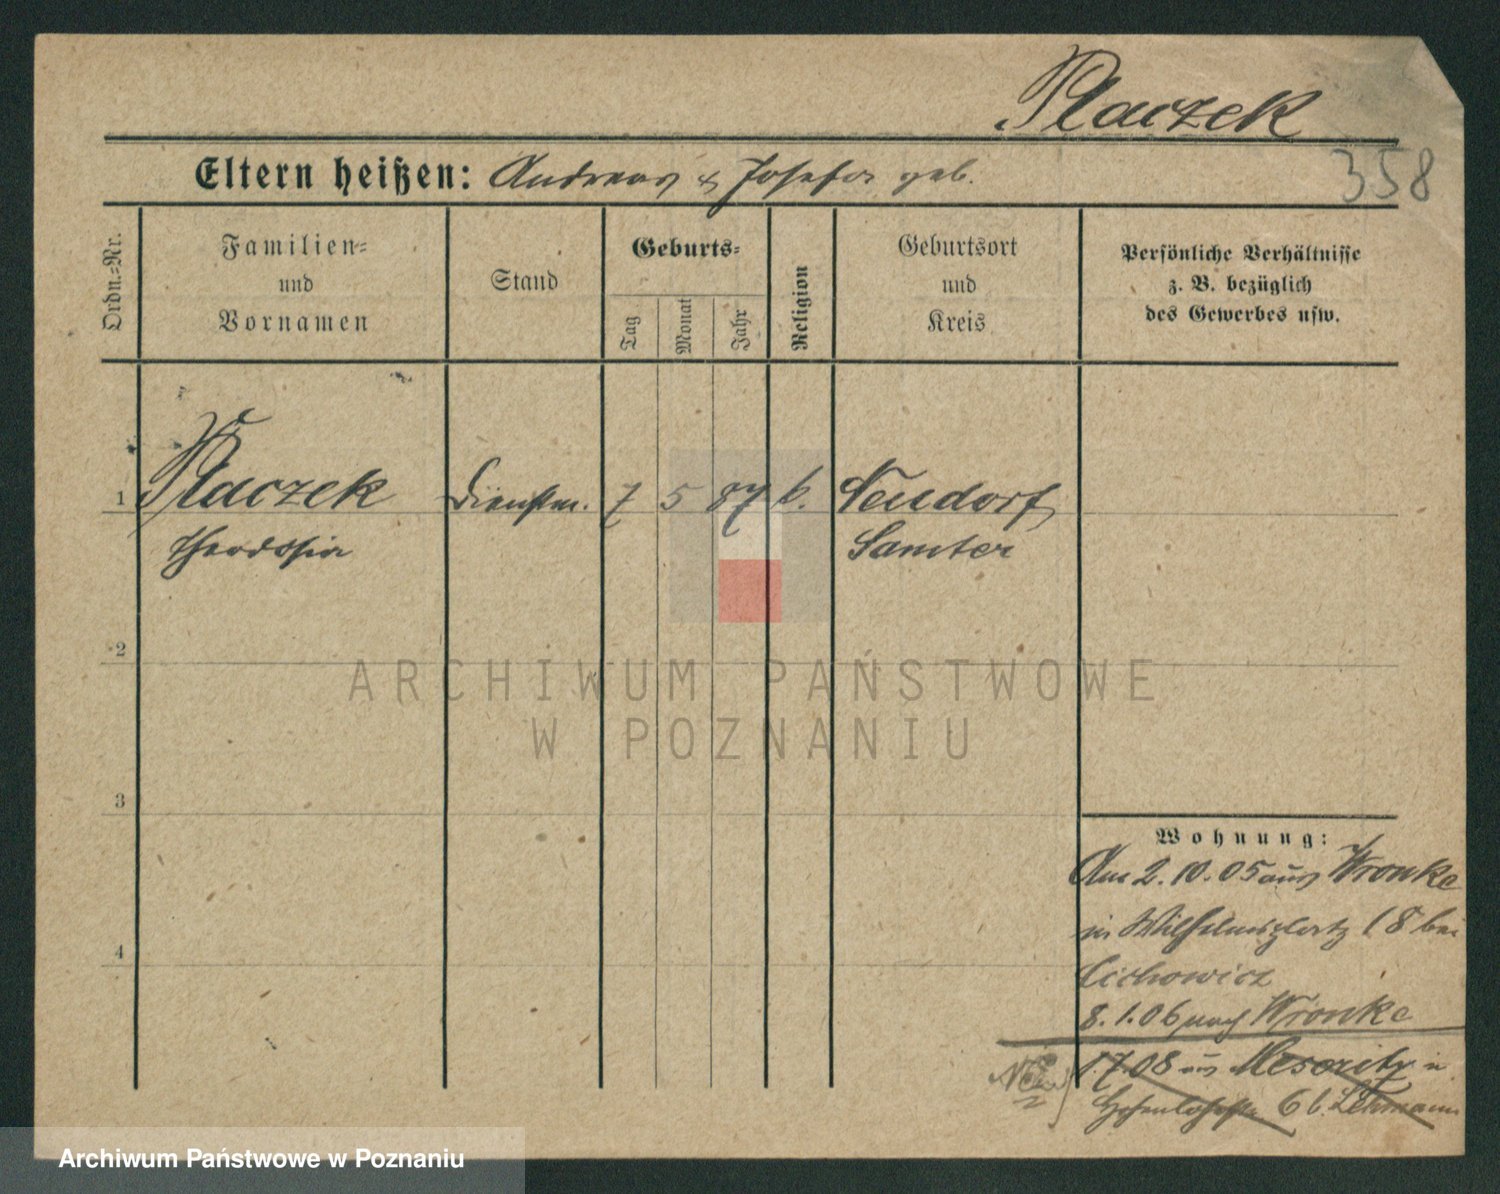 Placzek
Eltern heißen: Andreas & Josefa geb.
358
Ordn.=Nr.
Familien=
und
Vornamen
Stand
Geburts=
Tag
Monat
Jahr
Religion
Geburtsort
und
Kreis
Persönliche Verhältnisse
z. B. bezüglich
des Gewerbes usw.
1 Placzek Dienstm. 7 5 87 k. Neudorf
Theodosia Samter
2
ARCHIWUM PAŃSTWOWE
W POZNANIU
3
Wohnung:
Am 2. 10. 05 aus Wronke
in Wilhelmsplatz 18 bei
Cichowicz
4
8. 1. 06 nach Wronke
1.7.08 aus Meseritz in
Hohenlohestr. 6 b. Lehmann
Archiwum Państwowe w Poznaniu